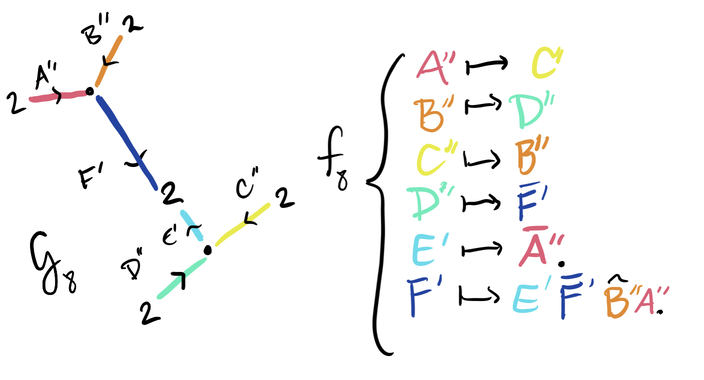 B'' 2
A''
2
F'
2
C'' 2
E'
D''
2
G₈
f₈
A'' ↦ C''
B'' ↦ D''
C'' ↦ B''
D'' ↦ F̅'
E' ↦ A̅''.
F' ↦ E' F̅' B̃'' A''.